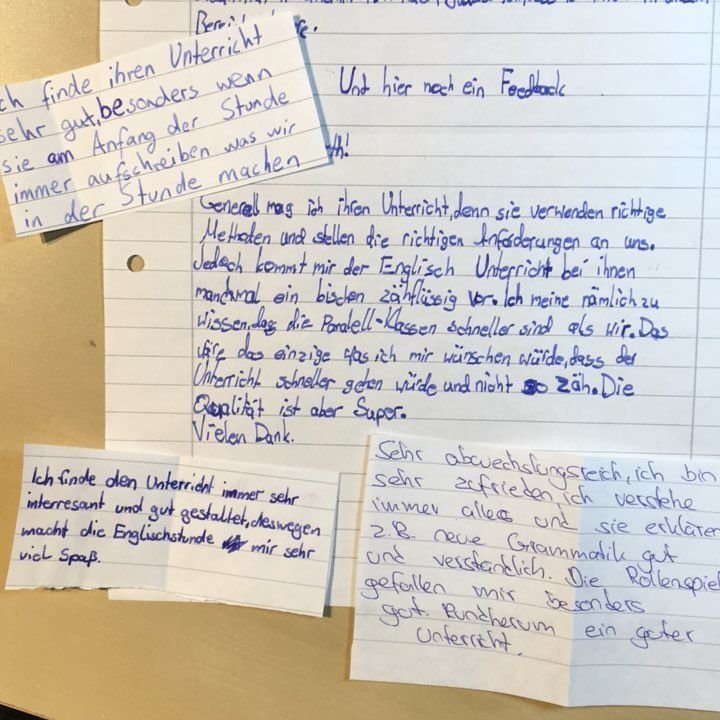 Und hier noch ein Feedback
ch finde ihren Unterricht
sehr gut, besonders wenn
sie am Anfang der Stunde
immer aufschreiben was wir
in der Stunde machen
Generell mag ich ihren Unterricht, denn sie verwenden richtige
Methoden und stellen die richtigen Anforderungen an uns.
Jedoch kommt mir der Englisch Unterricht bei ihnen
manchmal ein bischen zähflüssig vor. Ich meine nämlich zu
wissen, das die Paralell-Klassen schneller sind als wir. Das
wäre das einzige was ich mir wünschen würde, dass der
Unterricht schneller gehen würde und nicht so zäh. Die
Qualität ist aber Super.
Vielen Dank.
Ich finde den Unterricht immer sehr
interresant und gut gestaltet, deswegen
macht die Englischstunde mir sehr
viel Spaß.
Sehr abwechslungsreich, ich bin
sehr zufrieden, ich verstehe
immer alles und sie erklären
z.B. neue Grammatik gut
und verständlich. Die Rollenspiel
gefallen mir besonders
gut. Rundherum ein guter
Unterricht.